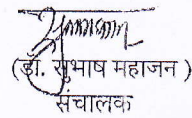 (डॉ. सुभाष महाजन )
संचालक